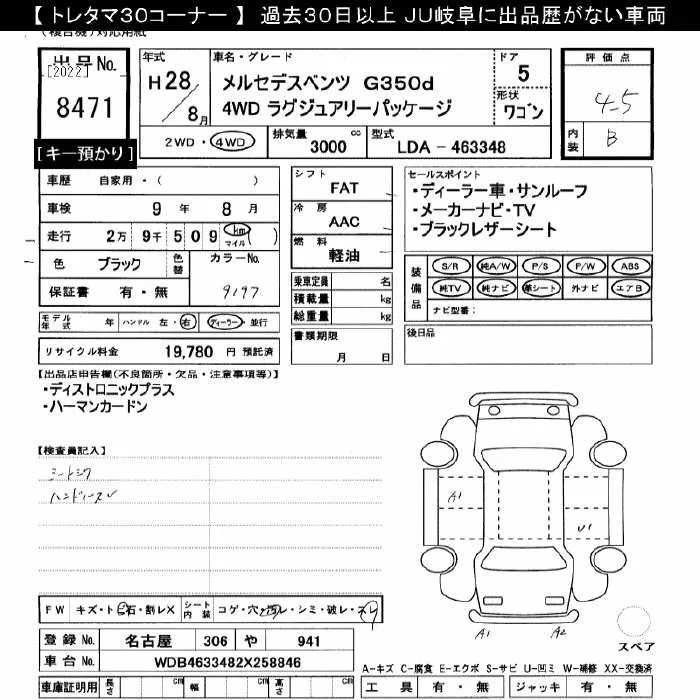 【 トレタマ30コーナー 】 過去30日以上 JU岐阜に出品歴がない車両
出品No.
[2022]
8471
【キー預かり】
年式
H28/8月
車名・グレード
メルセデスベンツ G350d
4WD ラグジュアリーパッケージ
ドア
5
形状
ワゴン
2WD・4WD
排気量 3000 cc
型式 LDA - 463348
評価点
4.5
内装
B
車歴 自家用・( )
車検 9 年 8 月
走行 2万 9千 5 0 9 km マイル ( )
色 ブラック 色替 カラーNo.
保証書 有・無 9197
シフト FAT
冷房 AAC
燃料 軽油
乗車定員 名
積載量 kg
総重量 kg
書類期限
月 日
セールスポイント
・ディーラー車・サンルーフ
・メーカーナビ・TV
・ブラックレザーシート
装備品
S/R 純A/W P/S P/W ABS
純TV 純ナビ 革シート 外ナビ エアB
ナビ型番:
後日品
モデル年式 年 ハンドル 左・右 ディーラー・並行
リサイクル料金 19,780 円 預託済
【出品店申告欄(不良箇所・欠品・注意事項等)】
・ディストロニックプラス
・ハーマンカードン
【検査員記入】
シートシワ
A1
U1
A1 A2
スペア
FW キズ・ト石・割レX シート内装 コゲ・穴・汚レ・シミ・破レ・スレ
登録 No. 名古屋 306 や 941
車台 No. WDB4633482X258846
車庫証明用 長さ cm 幅 cm 高さ cm
A-キズ C-腐食 E-エクボ S-サビ U-凹ミ W-補修 XX-交換済
工具 有・無 ジャッキ 有・無